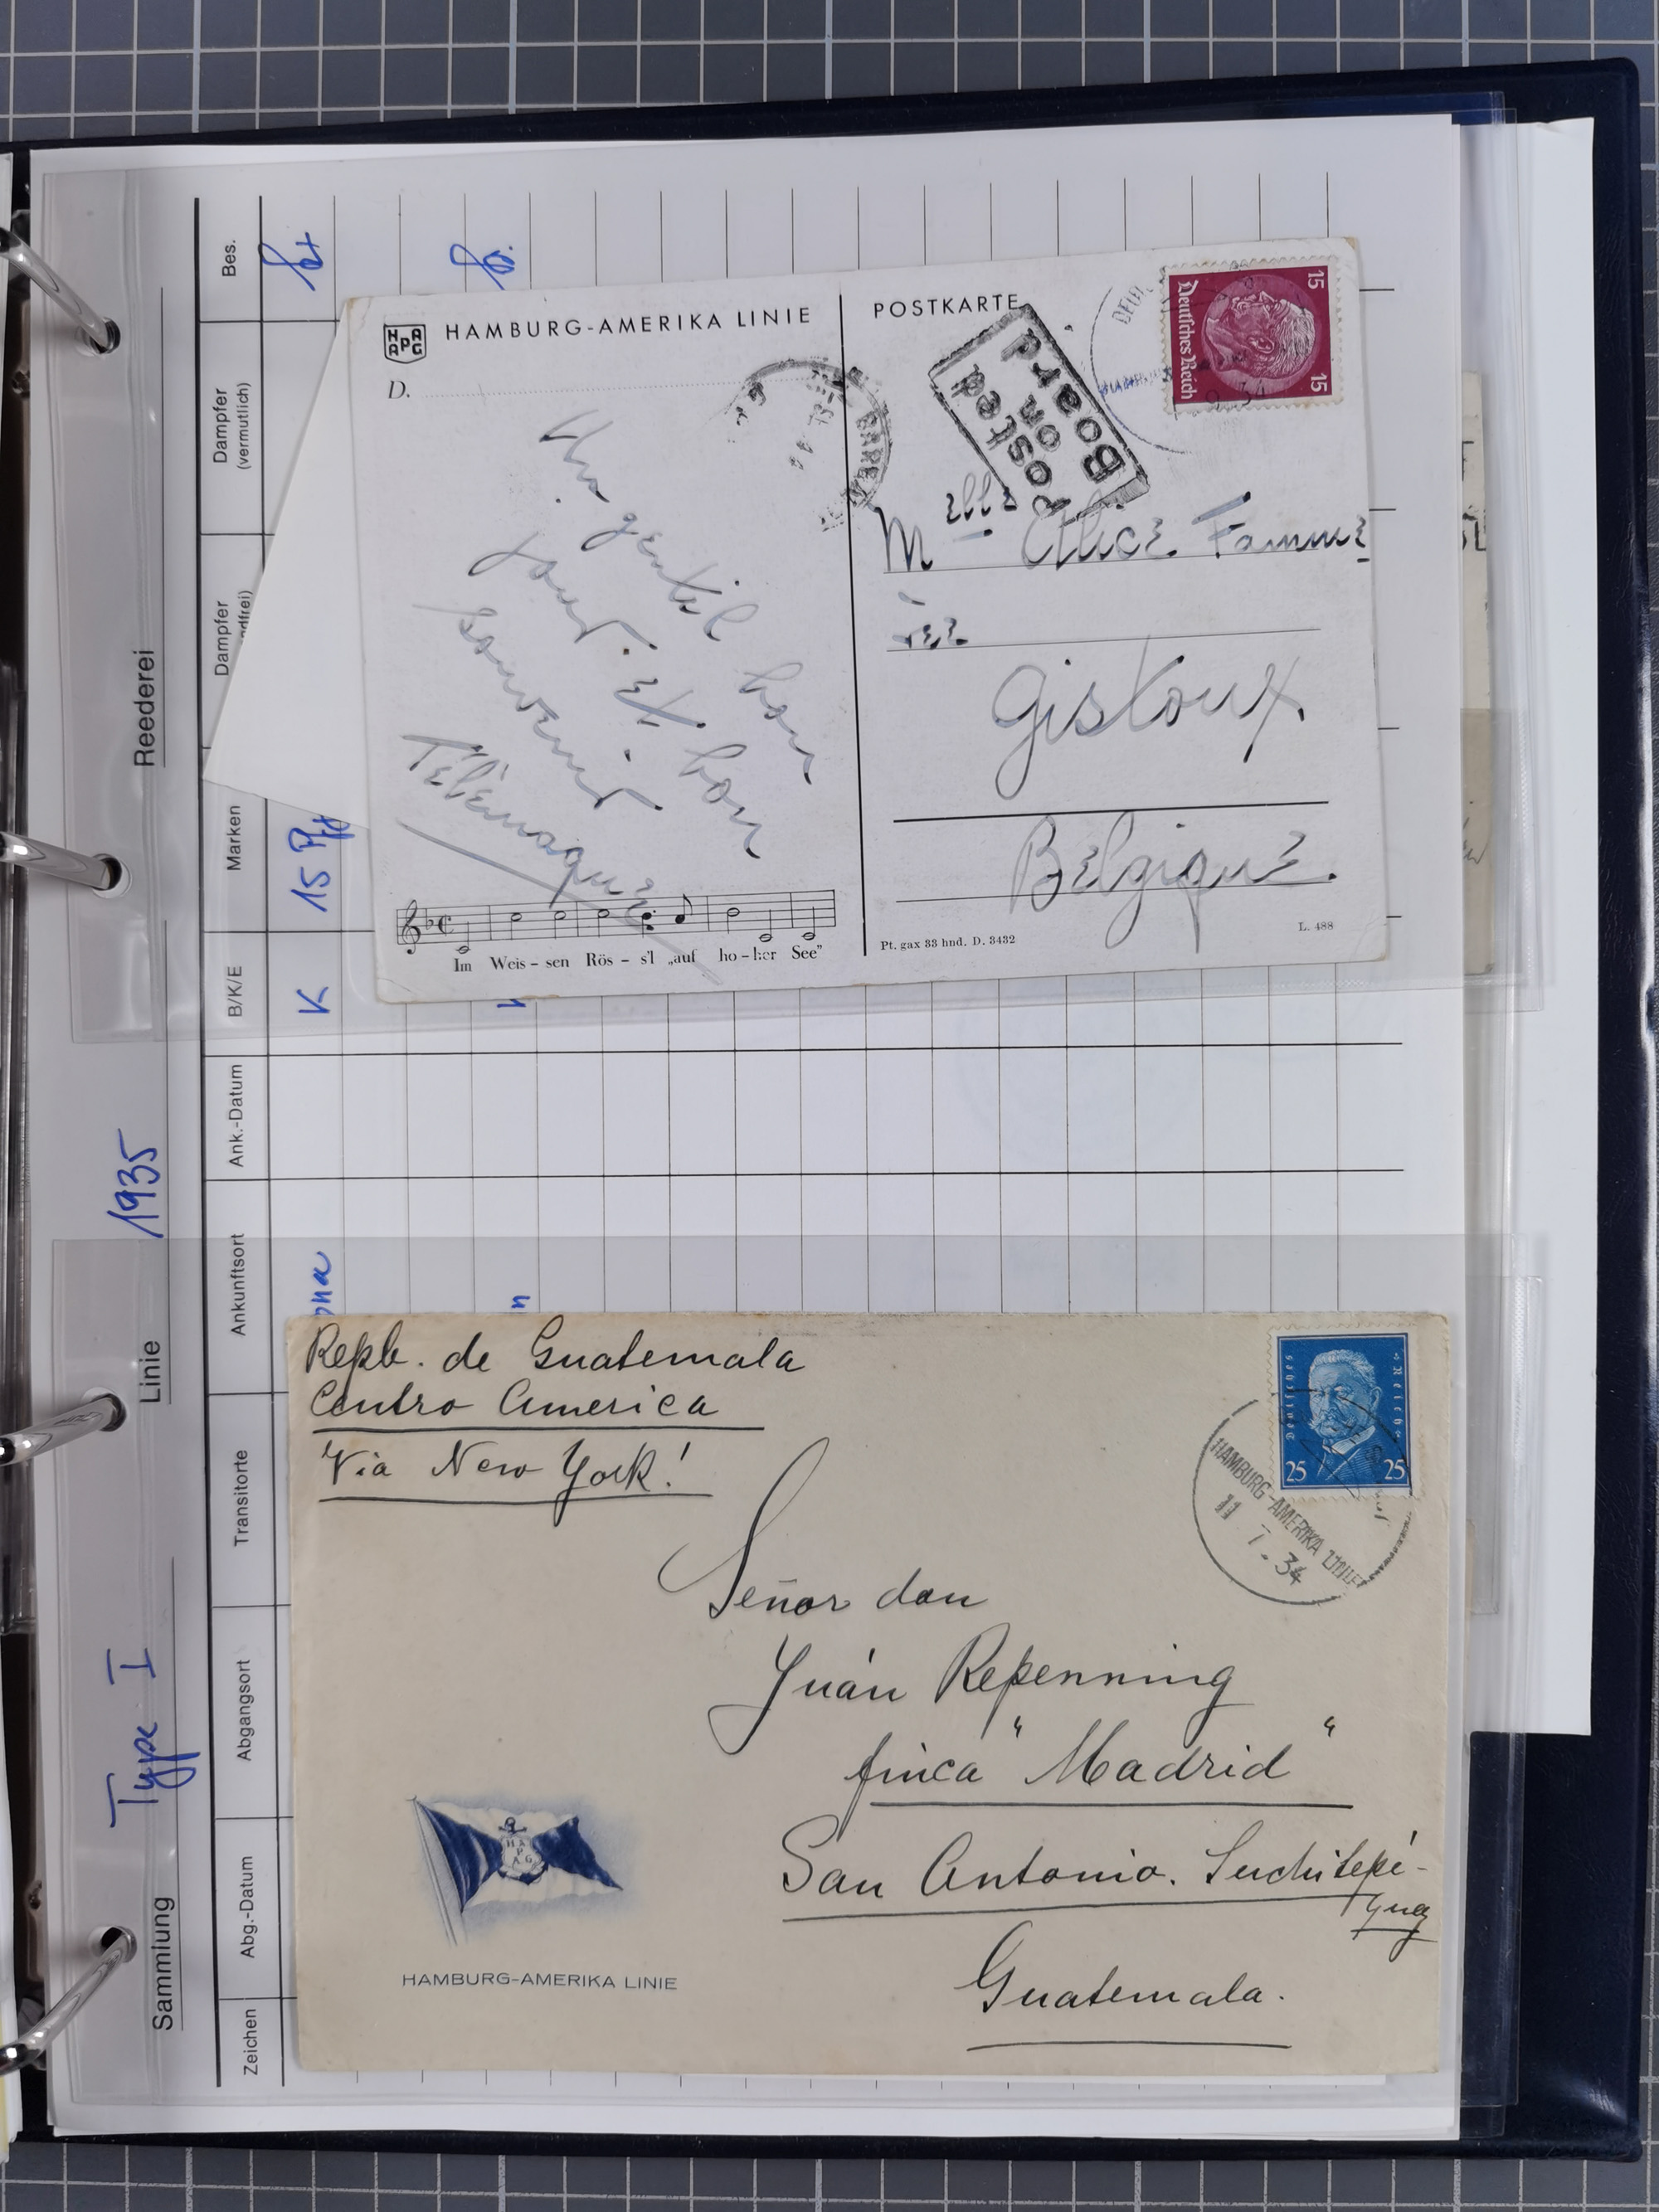 Sammlung Type I Linie 1935 Reederei
Zeichen
Abg.-Datum
Abgangsort
Transitorte
Ankunftsort
Ank.-Datum
B/K/E
Marken
Dampfer
Dampfer
(vermutlich)
Bes.
K
15 Pf
HAPAG
HAMBURG-AMERIKA LINIE
D.
Un gentil bon
jour. et. bon
souvenir
Télémaque
Im Weis-sen Rös-s'l „auf ho-her See”
POSTKARTE
Posted
on
Board
Deutsches Reich
15
15
Melle Alice. Famme
Gistoux
Belgique.
Pt. gax 33 hnd. D. 3432
L. 488
Repb. de Guatemala
Centro America
Via New York!
Deutsches Reich
25
25
HAMBURG-AMERIKA LINIE
11 7.34
Señor don
Yuán Repenning
finca "Madrid"
San Antonio. Suchitepé-
quez
Guatemala.
HAPAG
HAMBURG-AMERIKA LINIE